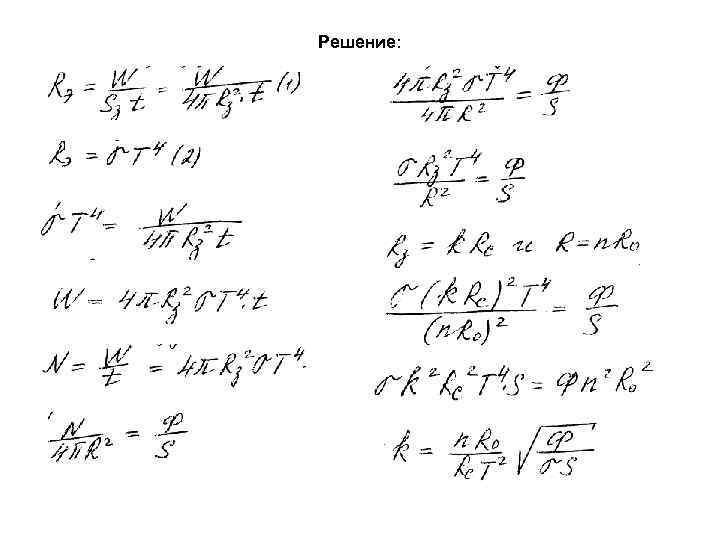 Решение:
Rэ = W / (Sз t) = W / (4π Rз² · t) (1)
Rэ = σT⁴ (2)
σT⁴ = W / (4π Rз² t)
W = 4π Rз² σT⁴ · t
N = W / t = 4π Rз² σT⁴.
N / (4πR²) = Ф / S
4π Rз² σT⁴ / (4π R²) = Ф / S
σ Rз² T⁴ / R² = Ф / S
Rз = k Rc и R = nR₀
σ (k Rc)² T⁴ / (nR₀)² = Ф / S
σ k² Rc² T⁴ · S = Ф n² R₀²
k = nR₀ / (Rc T²) √(Ф / (σS))